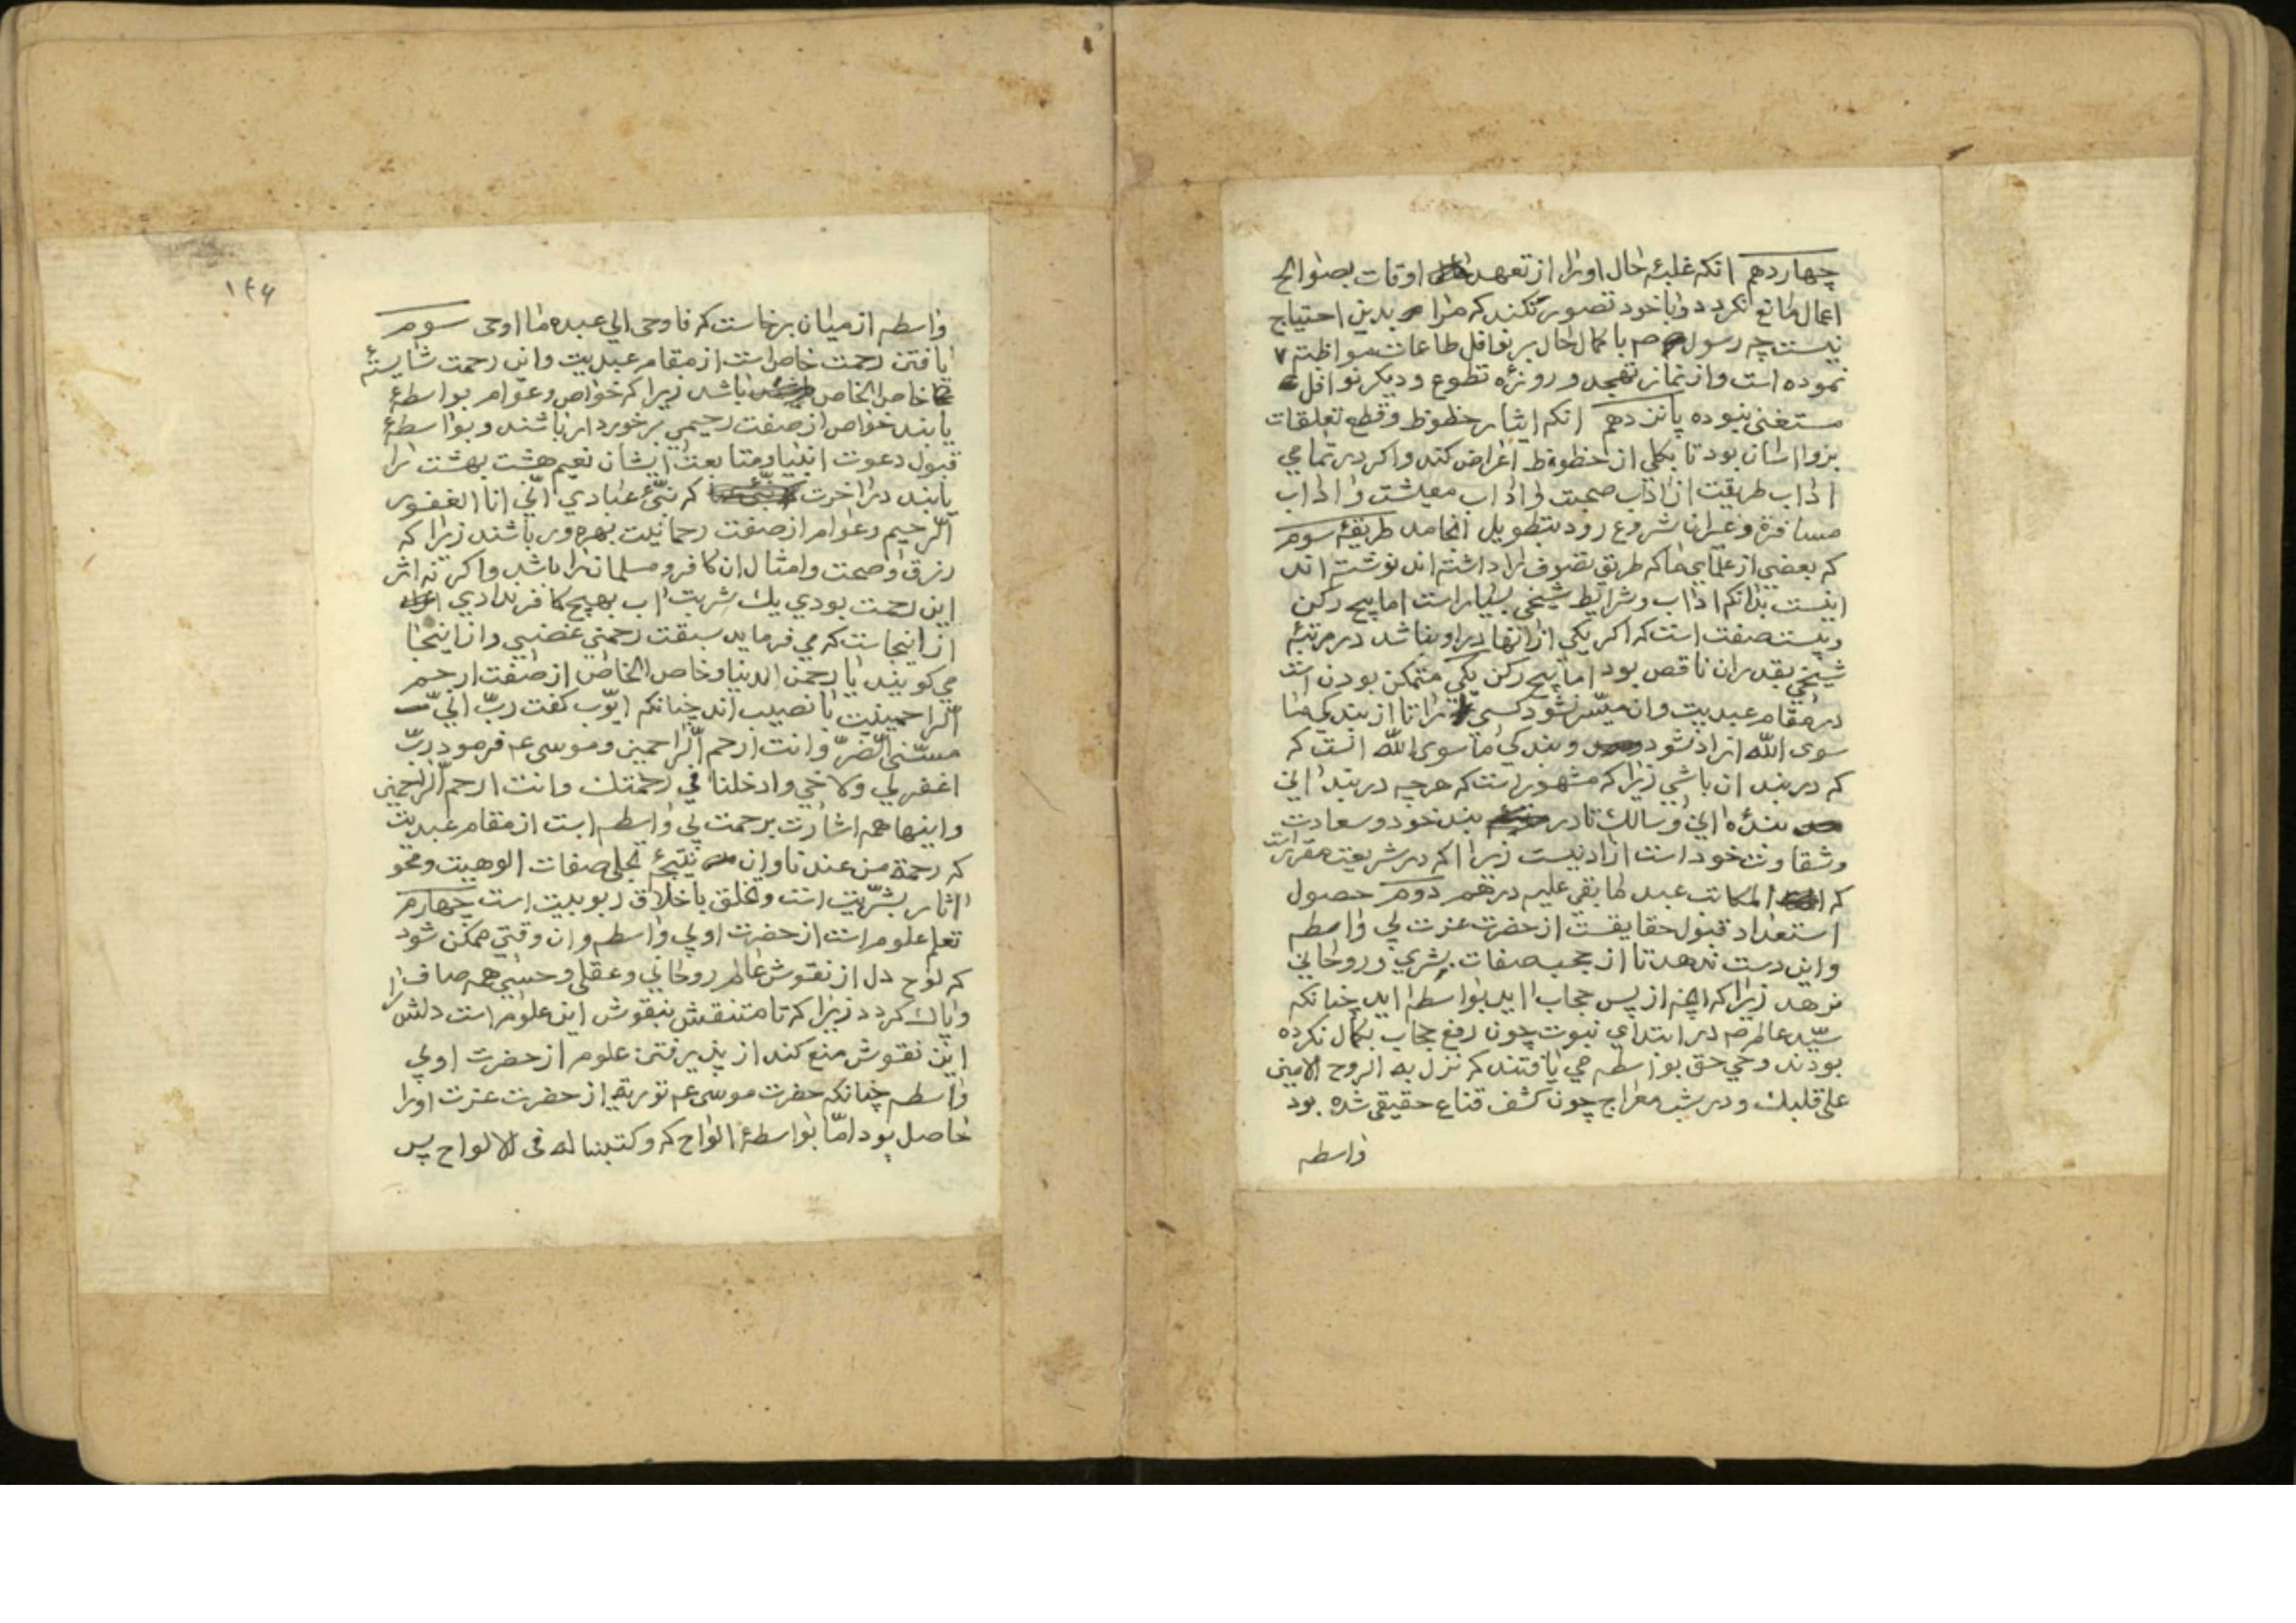 چهاردهم انکه غلبۀ حال اورا از تعهد اوقات بصوالح
اعمال مانع نکردد و با خود تصور نکند که مرا بدین احتیاج
نیست چه رسول صم با کمال حال بر نوافل طاعات مواظبت
نموده است واز نماز تهجد و روزۀ تطوع و دیکر نوافل
مستغنی نبوده پانزدهم انکه ایثار حظوظ وقطع تعلقات
بروا اسان بود تا بکلی از حظوظ اعراض کند واکر در تمامی
اداب طریقت از اداب صحبت و اداب معیشت و اداب
مسافرة وغیران شروع رود بتطویل انجامد طریقۀ سوم
که بعضی از علمای ما که طریق تصوف را داشته اند نوشته اند
اینست بدانکه اداب وشرایط شیخی بسیار است اما پنج رکن
وبیست صفت است که اکر یکی از انها در او نباشد در مرتبۀ
شیخی بقدر ان ناقص بود اما پنج رکن یکی متمکن بودن است
در مقام عبدیت وان میسر نشود کسی را تا از بندکی ما
سوی الله ازاد نشود وبندکی ما سوی الله انست که
که در بند ان باشی زیرا که مشهور است که هرچه در بند انی
بندۀ انی وسالک تا در بند خود وسعادت
وشقاوت خود است ازاد نیست زیرا که در شریعت مقرر است
که المکاتب عبد ما بقی علیه درهم دوم حصول
استعداد قبول حقایقست از حضرت عزت بی واسطه
واین دست ندهد تا از حجب صفات بشری وروحانی
نرهد زیرا که انچه از پس حجاب اید بواسطه اید چنانکه
سیّد عالم صم در ابتدای نبوت چون رفع حجاب بکمال نکرده
بودند وحی حق بواسطه می یافتند که نزل به الروح الامین
علی قلبک ودر شب معراج چون کشف قناع حقیقی شده بود
واسطه
۱۴۶
واسطه از میان برخاست که فاوحی الی عبده ما اوحی سوم
یافتن رحمت خاص است از مقام عبدیت واین رحمت شایستۀ
خاص الخاص باشد زیرا که خواص وعوام بواسطۀ
یابند خواص از صفت رحیمی برخوردار باشند وبواسطۀ
قبول دعوت انبیا ومتابعت ایشان نعیم هشت بهشت را
یابند در اخرت که نبّئ عبادی انّی انا الغفور
الرحیم وعوام از صفت رحمانیت بهره ور باشند زیرا که
رزق وصحت وامثال ان کافر ومسلمان را باشد واکر نه اثر
این رحمت بودی یک شربت اب بهیچ کافر ندادی
از اینجاست که می فرماید سبقت رحمتی غضبی واز اینجا
می کویند یا رحمن الدنیا وخاص الخاص از صفت ارحم
الراحمینیت با نصیب اند چنانکه ایّوب کفت ربّ انی
مسّنی الضرّ وانت ارحم الراحمین وموسی عم فرمود ربّ
اغفر لی ولاخی وادخلنا فی رحمتک وانت ارحم الراحمین
واینها همه اشارت برحمت بی واسطه است از مقام عبدیت
که رحمة من عندنا واین نتیجۀ تجلی صفات الوهیت ومحو
اثار بشریّت است وتخلق باخلاق ربوبیت است چهارم
تعلم علوم است از حضرت او بی واسطه وان وقتی ممکن شود
که لوح دل از نقوش عالم روحانی وعقلی وحسی همه صاف
وپاک کردد زیرا که تا متنقش بنقوش این علوم است دلش را
این نقوش منع کند از پذیرفتن علوم از حضرت او بی
واسطه چنانکه حضرت موسی عم توریة از حضرت عزت اورا
حاصل بود امّا بواسطۀ الواح که وکتبنا له فی الالواح پس